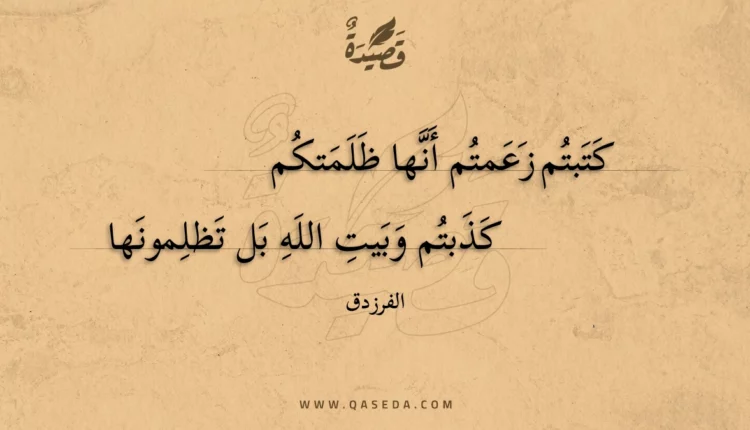 قَصِيدَةٌ
كَتَبتُم زَعَمتُم أَنَّها ظَلَمَتكُم
كَذَبتُم وَبَيتِ اللَهِ بَل تَظلِمونَها
الفرزدق
WWW.QASEDA.COM